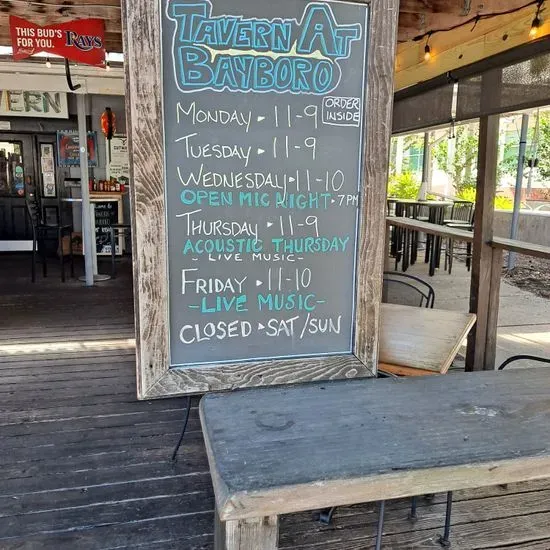 THIS BUD'S
FOR YOU.
RAYS
VERN
TAVERN AT
BAYBORO
MONDAY • 11-9
ORDER
INSIDE
TUESDAY • 11-9
WEDNESDAY • 11-10
OPEN MIC NIGHT • 7PM
THURSDAY • 11-9
ACOUSTIC THURSDAY
- LIVE MUSIC -
FRIDAY • 11-10
- LIVE MUSIC -
CLOSED • SAT/SUN